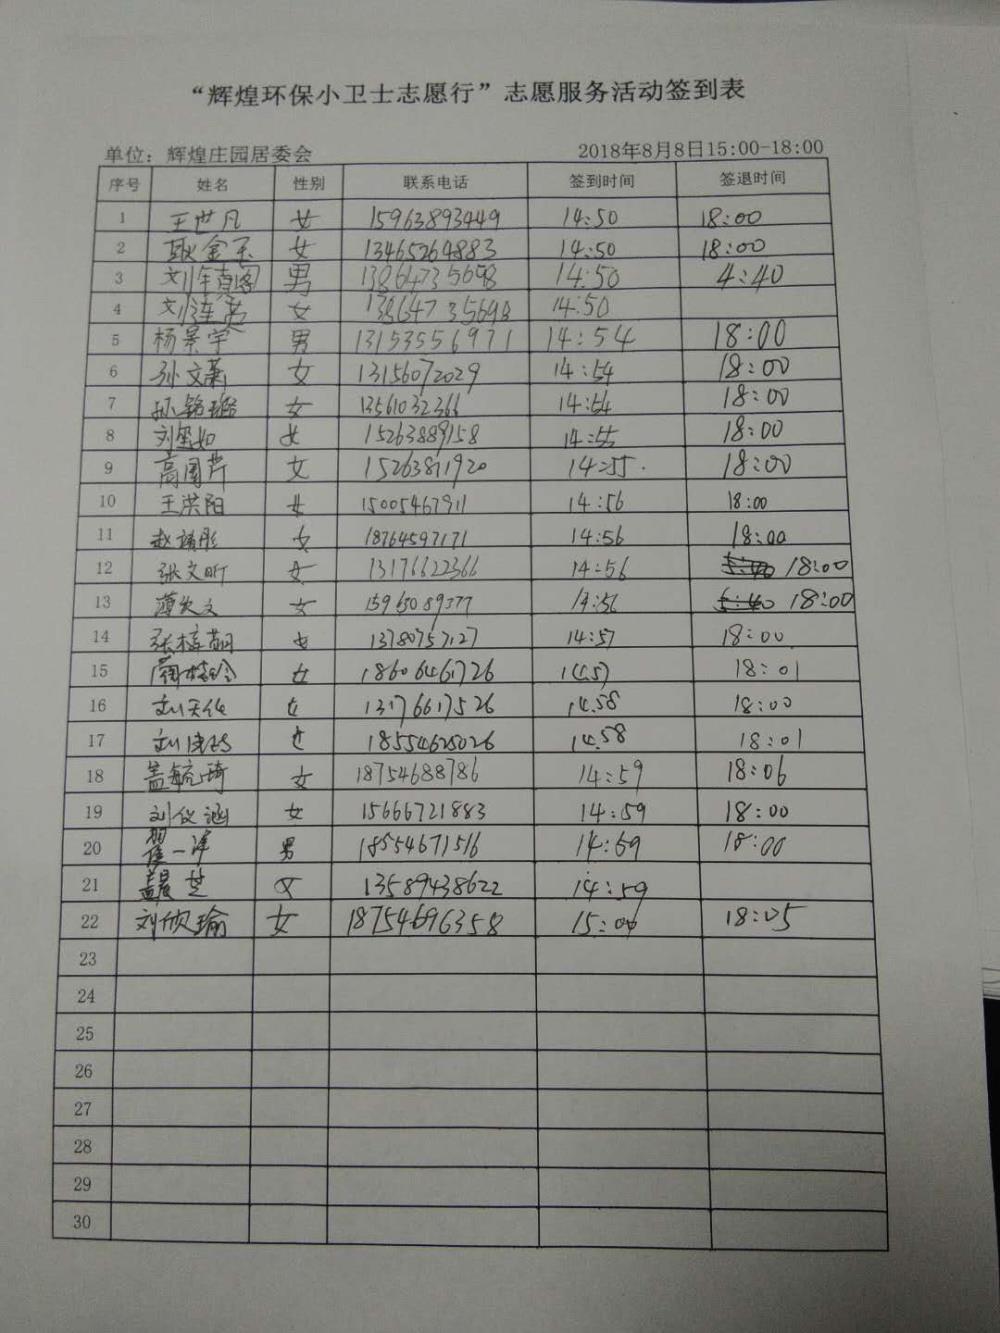 “辉煌环保小卫士志愿行”志愿服务活动签到表
单位：辉煌庄园居委会 2018年8月8日15:00-18:00
序号 姓名 性别 联系电话 签到时间 签退时间
1 王世凡 女 15963893449 14:50 18:00
2 耿金玉 女 13465264883 14:50 18:00
3 男 13864735698 14:50 4:40
4 刘连营 女 13864735698 14:50
5 杨景宇 男 13153556971 14:54 18:00
6 孙文萧 女 13156072029 14:54 18:00
7 孙铭璐 女 13561032366 14:54 18:00
8 刘玺如 女 15263889158 14:55 18:00
9 高国芹 女 15263811920 14:55. 18:00
10 王洪阳 女 15005467911 14:56 18:00
11 赵靖彤 女 18764597171 14:56 18:00
12 张文昕 女 13176622366 14:56 5:40 18:00
13 薄欣文 女 15965089377 14:56 5:40 18:00
14 张梓萌 女 13780757127 14:57 18:00
15 女 18606461726 14:57 18:01
16 刘天依 女 13176617526 14.58 18:00
17 女 18554628026 14.58 18:01
18 盖毓琦 女 18754688786 14:59 18:06
19 刘仪涵 女 15666721883 14:59 18:00
20 翟一泽 男 18554671516 14:59 18:00
21 盖晨芝 女 13589438622 14:59
22 刘欣瑜 女 18754696358 15:00 18:05
23
24
25
26
27
28
29
30